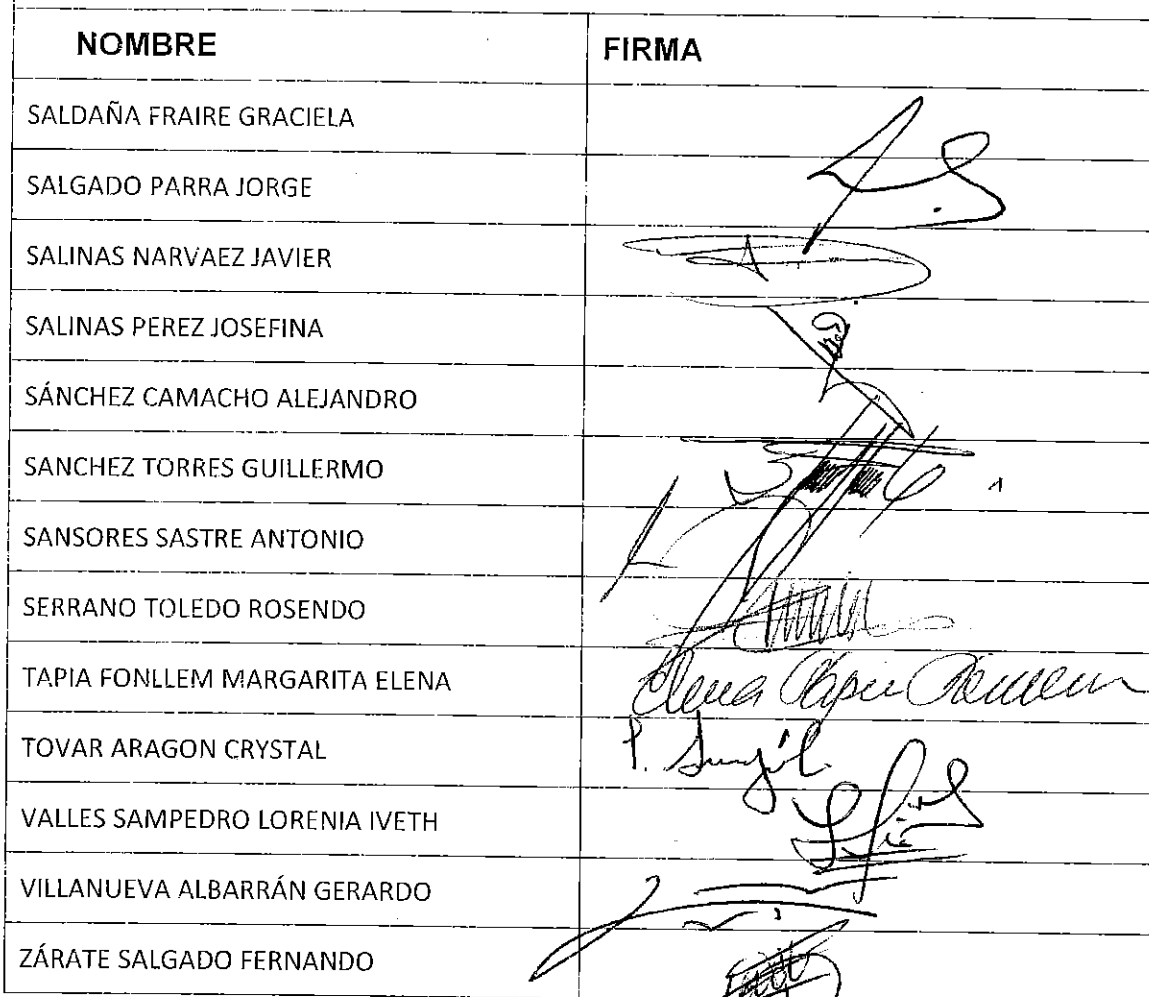 NOMBRE FIRMA
SALDAÑA FRAIRE GRACIELA
SALGADO PARRA JORGE
SALINAS NARVAEZ JAVIER
SALINAS PEREZ JOSEFINA
SÁNCHEZ CAMACHO ALEJANDRO
SANCHEZ TORRES GUILLERMO
SANSORES SASTRE ANTONIO
SERRANO TOLEDO ROSENDO
TAPIA FONLLEM MARGARITA ELENA Elena Tapia Fonllem
TOVAR ARAGON CRYSTAL
VALLES SAMPEDRO LORENIA IVETH
VILLANUEVA ALBARRÁN GERARDO
ZÁRATE SALGADO FERNANDO